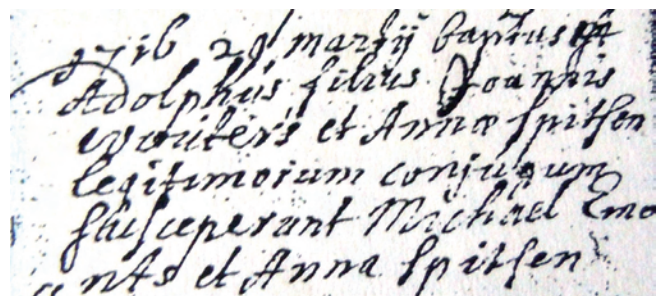 1716 29 martij baptisus est
Adolphus filius Joannis
Wouters et Annæ Spitsen
legitimorum conjugum
susceperunt Michael Emo
nts et Anna Spitsen